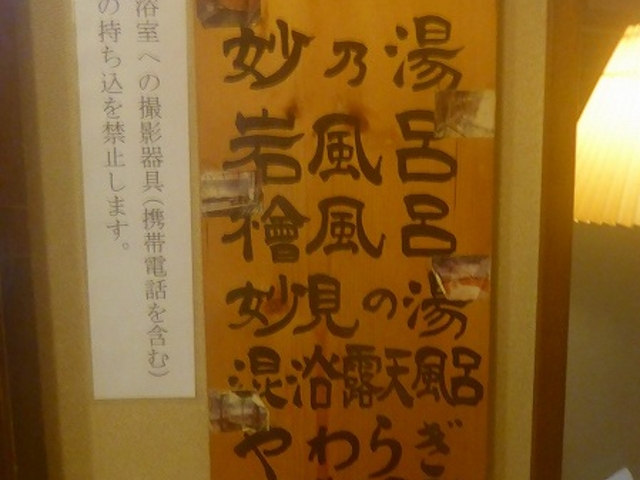 妙乃湯
岩風呂
檜風呂
妙見の湯
混浴露天風呂
やわらぎ
浴室への撮影器具(携帯電話を含む)
の持ち込を禁止します。